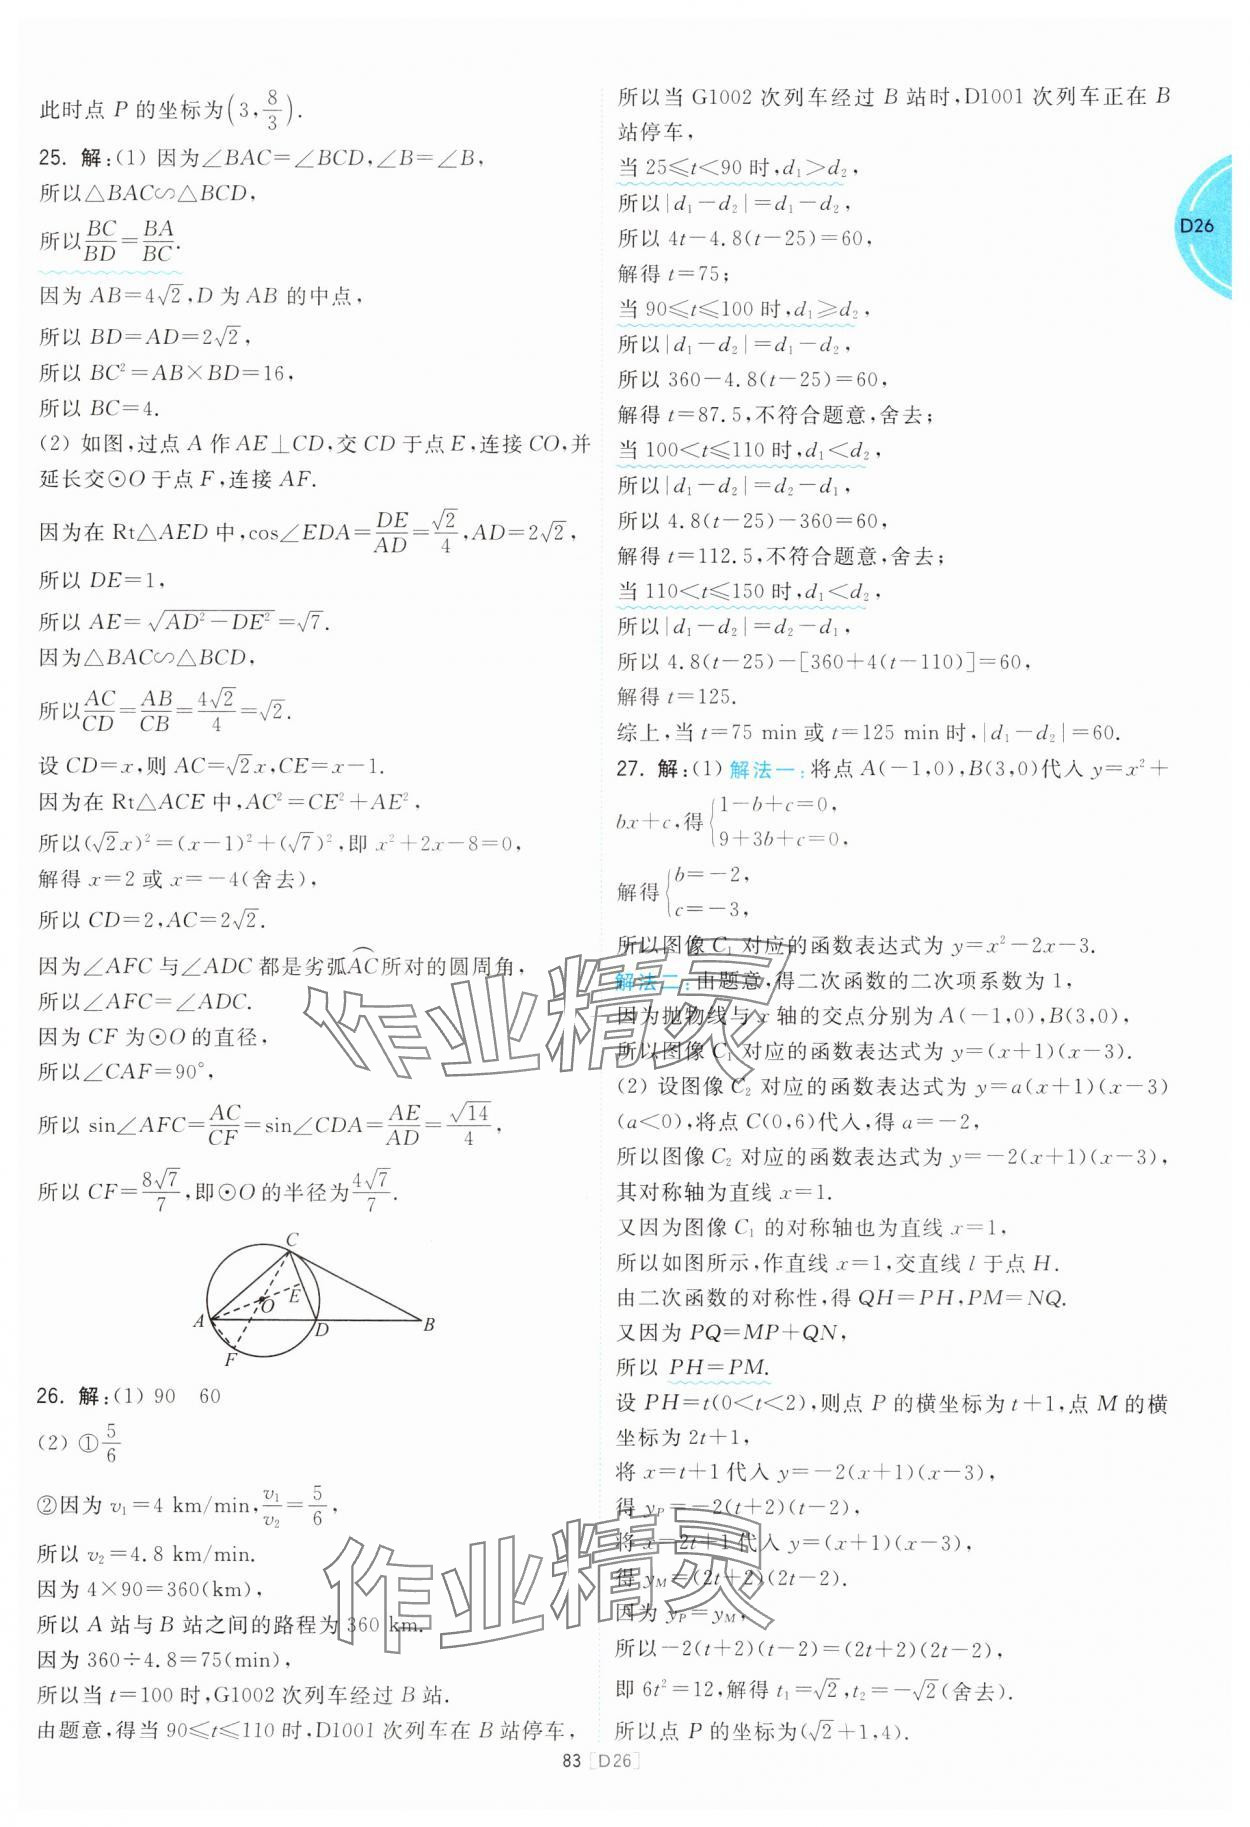 此时点 P 的坐标为(3,8/3).
25. 解:(1) 因为∠BAC=∠BCD,∠B=∠B,
所以△BAC∽△BCD,
所以BC/BD=BA/BC.
因为 AB=4√2,D 为 AB 的中点,
所以 BD=AD=2√2,
所以 BC²=AB×BD=16,
所以 BC=4.
(2) 如图,过点 A 作 AE⊥CD,交 CD 于点 E,连接 CO,并
延长交⊙O 于点 F,连接 AF.
因为在 Rt△AED 中,cos∠EDA=DE/AD=√2/4,AD=2√2,
所以 DE=1,
所以 AE=√(AD²-DE²)=√7.
因为△BAC∽△BCD,
所以AC/CD=AB/CB=4√2/4=√2.
设 CD=x,则 AC=√2x,CE=x-1.
因为在 Rt△ACE 中,AC²=CE²+AE²,
所以(√2x)²=(x-1)²+(√7)²,即 x²+2x-8=0,
解得 x=2 或 x=-4(舍去),
所以 CD=2,AC=2√2.
因为∠AFC 与∠ADC 都是劣弧AC所对的圆周角,
所以∠AFC=∠ADC.
因为 CF 为⊙O 的直径,
所以∠CAF=90°,
所以 sin∠AFC=AC/CF=sin∠CDA=AE/AD=√14/4,
所以 CF=8√7/7,即⊙O 的半径为4√7/7.
C
E
O
A
D
B
F
26. 解:(1) 90 60
(2) ①5/6
②因为 v₁=4 km/min,v₁/v₂=5/6,
所以 v₂=4.8 km/min.
因为 4×90=360(km),
所以 A 站与 B 站之间的路程为 360 km.
因为 360÷4.8=75(min),
所以当 t=100 时,G1002 次列车经过 B 站.
由题意,得当 90≤t≤110 时,D1001 次列车在 B 站停车,
所以当 G1002 次列车经过 B 站时,D1001 次列车正在 B
站停车,
当 25≤t<90 时,d₁>d₂,
所以|d₁-d₂|=d₁-d₂,
所以 4t-4.8(t-25)=60,
解得 t=75;
当 90≤t≤100 时,d₁≥d₂,
所以|d₁-d₂|=d₁-d₂,
所以 360-4.8(t-25)=60,
解得 t=87.5,不符合题意,舍去;
当 100<t≤110 时,d₁<d₂,
所以|d₁-d₂|=d₂-d₁,
所以 4.8(t-25)-360=60,
解得 t=112.5,不符合题意,舍去;
当 110<t≤150 时,d₁<d₂,
所以|d₁-d₂|=d₂-d₁,
所以 4.8(t-25)-[360+4(t-110)]=60,
解得 t=125.
综上,当 t=75 min 或 t=125 min 时,|d₁-d₂|=60.
27. 解:(1) 解法一:将点 A(-1,0),B(3,0)代入 y=x²+
bx+c,得{1-b+c=0, 9+3b+c=0,
解得{b=-2, c=-3,
所以图像 C₁ 对应的函数表达式为 y=x²-2x-3.
解法二:由题意,得二次函数的二次项系数为 1,
因为抛物线与 x 轴的交点分别为 A(-1,0),B(3,0),
所以图像 C₁ 对应的函数表达式为 y=(x+1)(x-3).
(2) 设图像 C₂ 对应的函数表达式为 y=a(x+1)(x-3)
(a<0),将点 C(0,6)代入,得 a=-2,
所以图像 C₂ 对应的函数表达式为 y=-2(x+1)(x-3),
其对称轴为直线 x=1.
又因为图像 C₁ 的对称轴也为直线 x=1,
所以如图所示,作直线 x=1,交直线 l 于点 H.
由二次函数的对称性,得 QH=PH,PM=NQ.
又因为 PQ=MP+QN,
所以 PH=PM.
设 PH=t(0<t<2),则点 P 的横坐标为 t+1,点 M 的横
坐标为 2t+1,
将 x=t+1 代入 y=-2(x+1)(x-3),
得 yP=-2(t+2)(t-2),
将 x=2t+1 代入 y=(x+1)(x-3),
得 yM=(2t+2)(2t-2).
因为 yP=yM,
所以-2(t+2)(t-2)=(2t+2)(2t-2),
即 6t²=12,解得 t₁=√2,t₂=-√2(舍去).
所以点 P 的坐标为(√2+1,4).
D26
83 [D26]
作业精灵
作业精灵